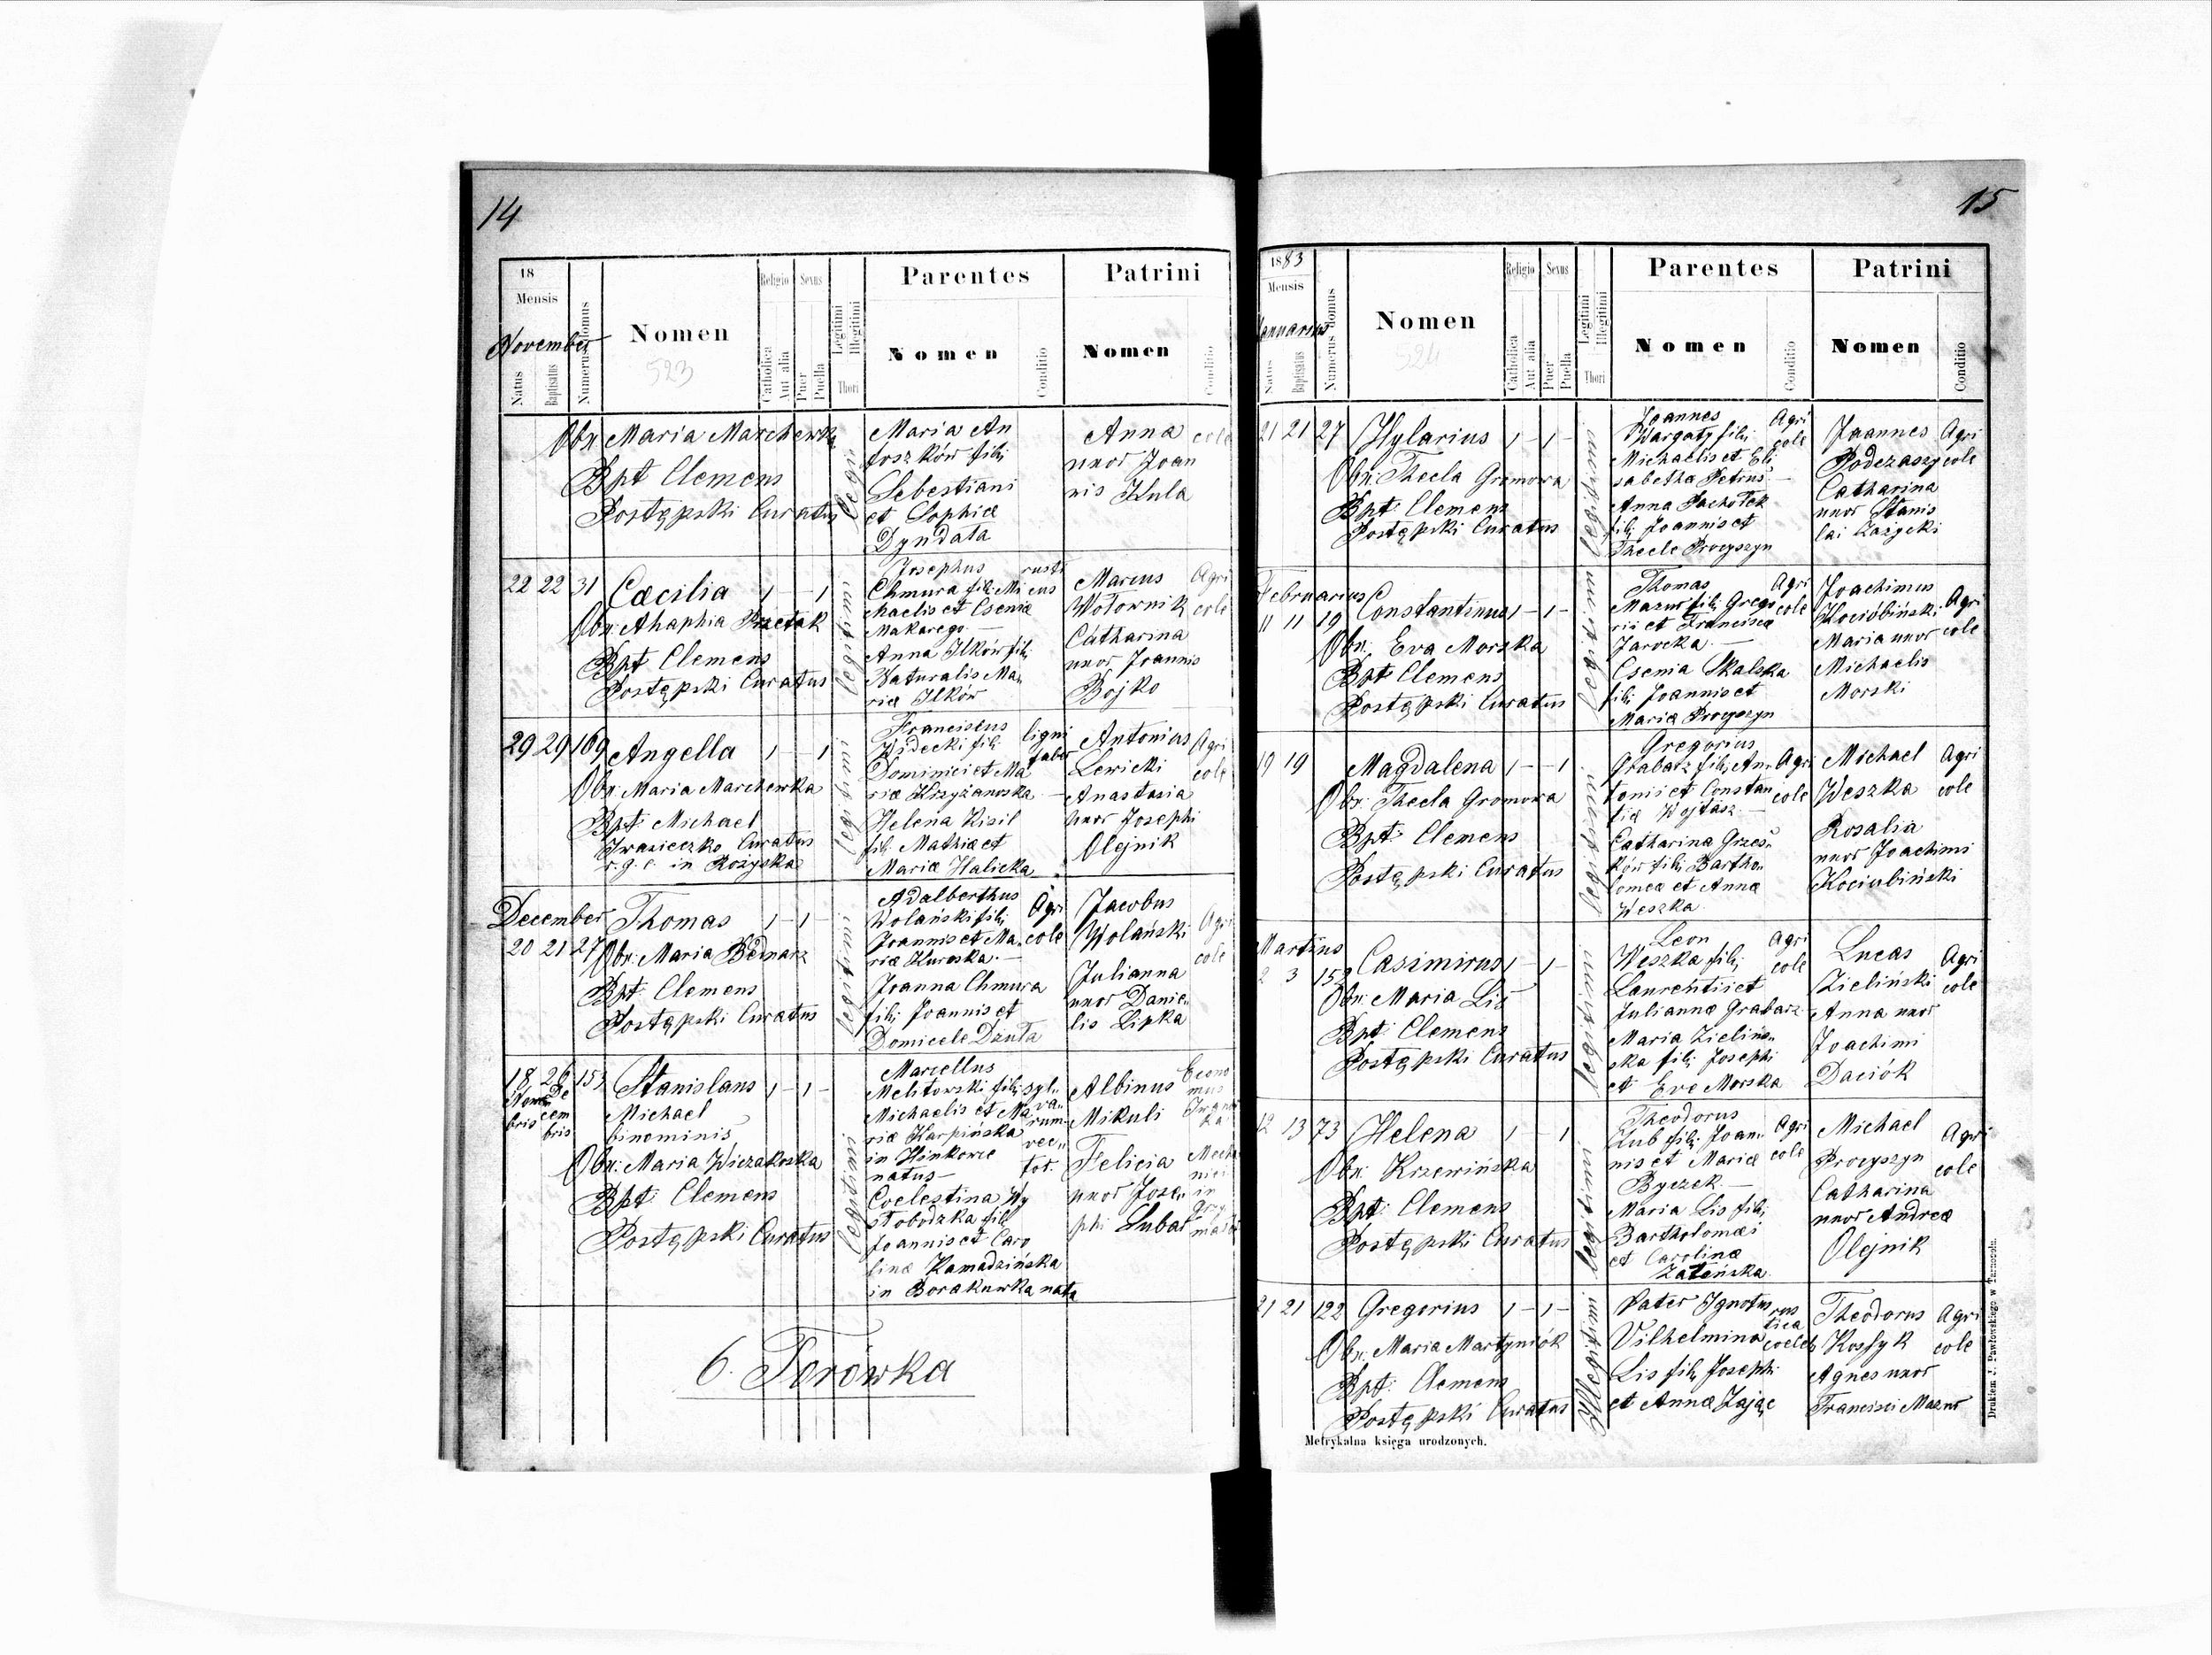 14
18
Mensis
November
Natus
Baptisatus
Numerus Domus
Nomen
523
Religio
Catholica
Aut alia
Sexus
Puer
Puella
Legitimi
Illegitimi
Thori
Parentes
Nomen
Conditio
Patrini
Nomen
Conditio
Obx: Maria Marchewka
Bpt Clemens
Postępski Curatus
Legi
Maria An
toszków fili
Sebestiani
et Sophiæ
Dyndata
Anna
uxor Joan
nis Kula
cole
22 22 31 Cæcilia 1 - - 1
Obx: Ahaphia
Bpt Clemens
Postępski Curatus
legitimi
Josephus
Chmura fili Mi
chaelis et Cseniæ
Makarego.—
Anna Ilków fili
Naturalis Ma
riæ Ilków
rusti
cus
Marcus
Wołownik
Catharina
uxor Joannis
Bojko
Agri
cole
29 29 169 Angella 1 - - 1
Obx: Maria Marchewka
Bpt: Michael
Iwasieczko Curatus
r. g. c. in Rożyska
legitimi
Franciscus
Wsdecki fili
Dominici et Ma
riæ Krzyżanoska —
Helena Kisil
fili Mathiæ et
Mariæ Halicka
ligni
faber
Antonius
Lewicki
Anastasia
uxor Josephi
Olejnik
Agri
cole
December
20 21 27 Thomas 1 - 1 -
Obx: Maria Bednarz
Bpt: Clemens
Postępski Curatus
legitimi
Adalberthus
Wolański fili
Joannis et Ma
riæ Kuroska.—
Joanna Chmura
fili Joannis et
Domicele Dżuła
Agri
cole
Jacobus
Wolański
Julianna
uxor Danie
lis Lipka
Agri
cole
18 26 153 Stanislaus 1 - 1 -
Novem
bris
De
cem
bris
Michael
binominis
Obx: Maria Wiczakoska
Bpt: Clemens
Postępski Curatus
legitimi
Marcellus
Melitowski fili
Michaelis et Ma
riæ Karpińska
in Hinkowce
natus —
Coelestina Wy
słobodzka fili
Joannis et Caro
linæ Kamadzińska
in Borakuwka nata
syl
va
rum
rec
tor.
Albinus
Mikuli
Felicia
uxor Jose
phi Lubas
Econo
mus
Iwan
ka
Mecha
nici
in
Grzy
mało
6. Torówka
15
1883
Mensis
Januarius
Natus
Baptisatus
Numerus Domus
Nomen
524
Religio
Catholica
Aut alia
Sexus
Puer
Puella
Legitimi
Illegitimi
Thori
Parentes
Nomen
Conditio
Patrini
Nomen
Conditio
21 21 27 Hylarius 1 - 1 -
Obx: Thecla Gromowa
Bpt: Clemens
Postępski Curatus
legitimi
Joannes
Wargaty fili
Michaelis et Eli
sabethæ Petrus —
Anna Pachołek
fili Joannis et
Thecle Procyszyn
Agri
cole
Joannes
Podczaszy
Catharina
uxor Stanis
lai Zażycki
Agri
cole
Februarius
11 11 19 Constantinus 1 - 1 -
Obx: Eva Morska
Bpt Clemens
Postępski Curatus
legitimi
Thomas
Mazur fili Grego
rii et Franciscæ
Jarocka —
Csenia Skalska
fili Joannis et
Mariæ Procyszyn
Agri
cole
Joachimus
Kociobiński
Maria uxor
Michaelis
Morski
Agri
cole
19 19 Magdalena 1 - - 1
Obx: Thecla Gromowa
Bpt: Clemens
Postępski Curatus
legitimi
Gregorius
Grabarz fili An
tonii et Constan
tiæ Wojtasz —
Catharina Grzes
ków fili Bartho
lomeæ et Annæ
Weszka
Agri
cole
Michael
Weszka
Rosalia
uxor Joachimi
Kociubiński
Agri
cole
Martius
2 3 152 Casimirus 1 - 1 -
Obx: Maria Lis
Bpt: Clemens
Postępski Curatus
legitimi
Leon
Weszka fili
Laurentii et
Juliannæ Grabarz
Maria Zielińs
ka fili Josephi
et Eve Morska
Agri
cole
Lucas
Zieliński
Anna uxor
Joachimi
Daciók
Agri
cole
12 13 73 Helena 1 - - 1
Obx: Krzewińska
Bpt: Clemens
Postępski Curatus
legitimi
Theodorus
Club fili Joan
nis et Mariæ
Byczek —
Maria Lis fili
Bartholomæi
et Carolinæ
Załeńska
Agri
cole
Michael
Procyszyn
Catharina
uxor Andreæ
Olejnik
Agri
cole
21 21 122 Gregorius 1 - 1 -
Obx: Maria Martyniók
Bpt: Clemens
Postępski Curatus
Illegitimi
Pater Ignotus
Vilhelmina
Lis fili Josephi
et Annæ Zając
rus
tica
coeleb
Theodorus
Kossyk
Agnes uxor
Francisci Mazur
Agri
cole
Metrykalna księga urodzonych.
Drukiem J. Pawłowskiego w Tarnopolu.